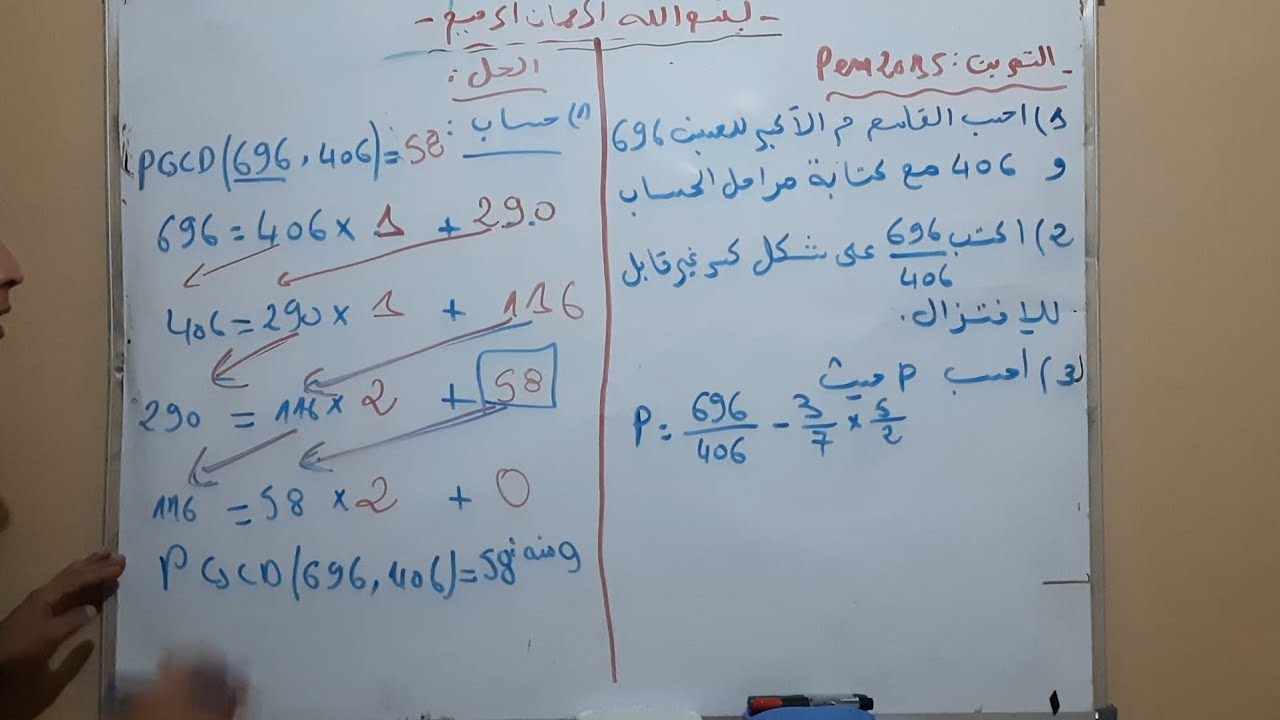 - بسم الله الرحمن الرحيم -
- التمرين : Pem 2015
1) احسب القاسم م الأكبر للعددين 696
و 406 مع كتابة مراحل الحساب
2) اكتب 696/406 على شكل كسر غير قابل
للإختزال.
3) احسب P حيث
P = 696/406 - 3/7 × 5/2
الحل :
1) حساب :
PGCD(696, 406) = 58
696 = 406 × 1 + 290
406 = 290 × 1 + 116
290 = 116 × 2 + 58
116 = 58 × 2 + 0
ومنه : PGCD(696, 406) = 58